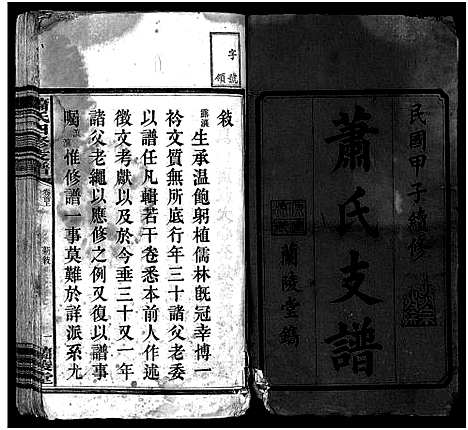 民國甲子續修
蕭氏支譜
蘭陵堂鐫
字 號
領
敘
生承温飽躬植儒林既冠幸博一
衿文質無所底行年三十諸父老委
以譜任凡輯若干卷悉本前人作述
徵文考獻以及於今垂三十又一年
諸父老繩以應修之例又復以譜事
囑 惟修譜一事莫難於詳派系尤
蕭氏四修支譜
卷首上
新敘
一
蘭陵堂